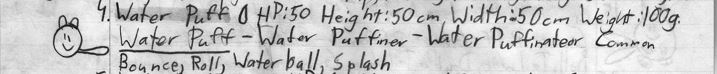 4. Water Puff HP:50 Height:50cm, Width:50cm Weight:100g.
Water Puff - Water Puffiner - Water Puffinateor Common
Bounce, Roll, Water ball, Splash